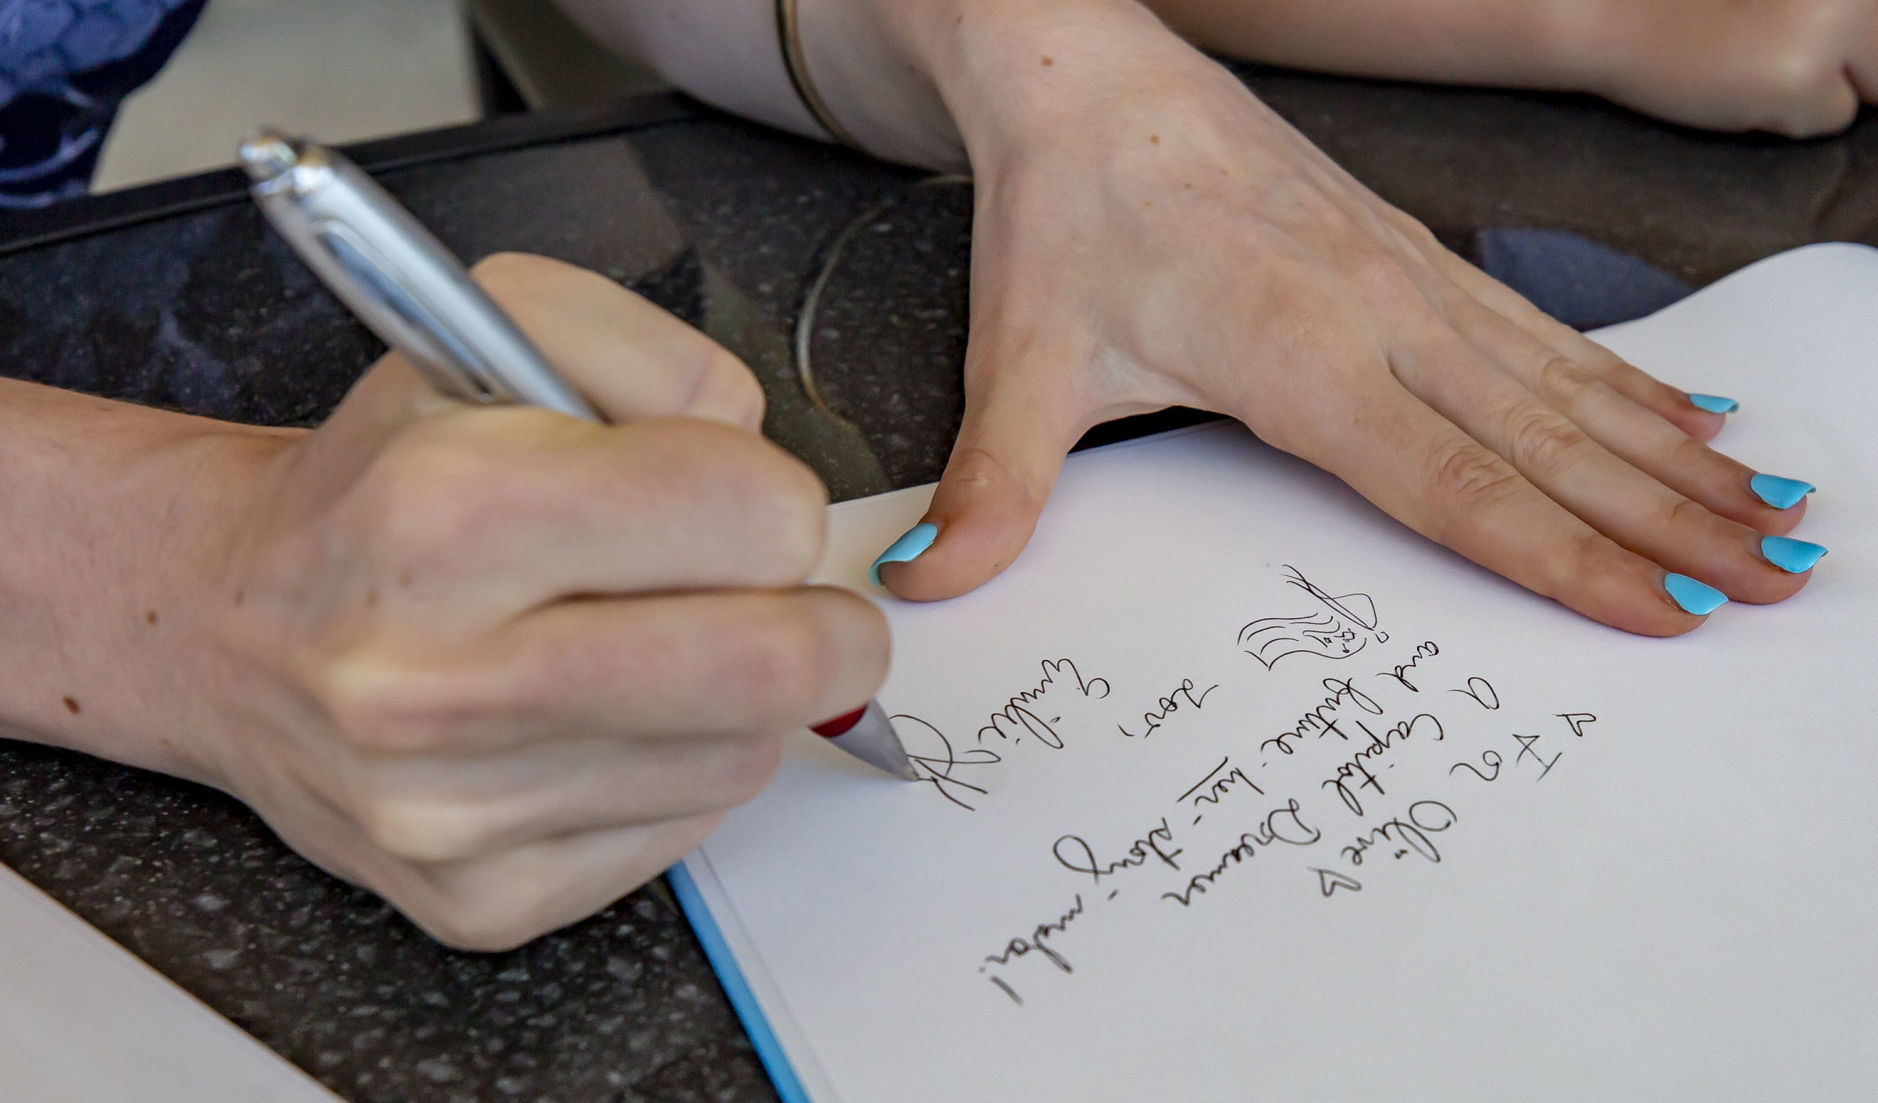 For Olive
a Capitol Dreamer
and future her-story-maker!
Love,
Emilie